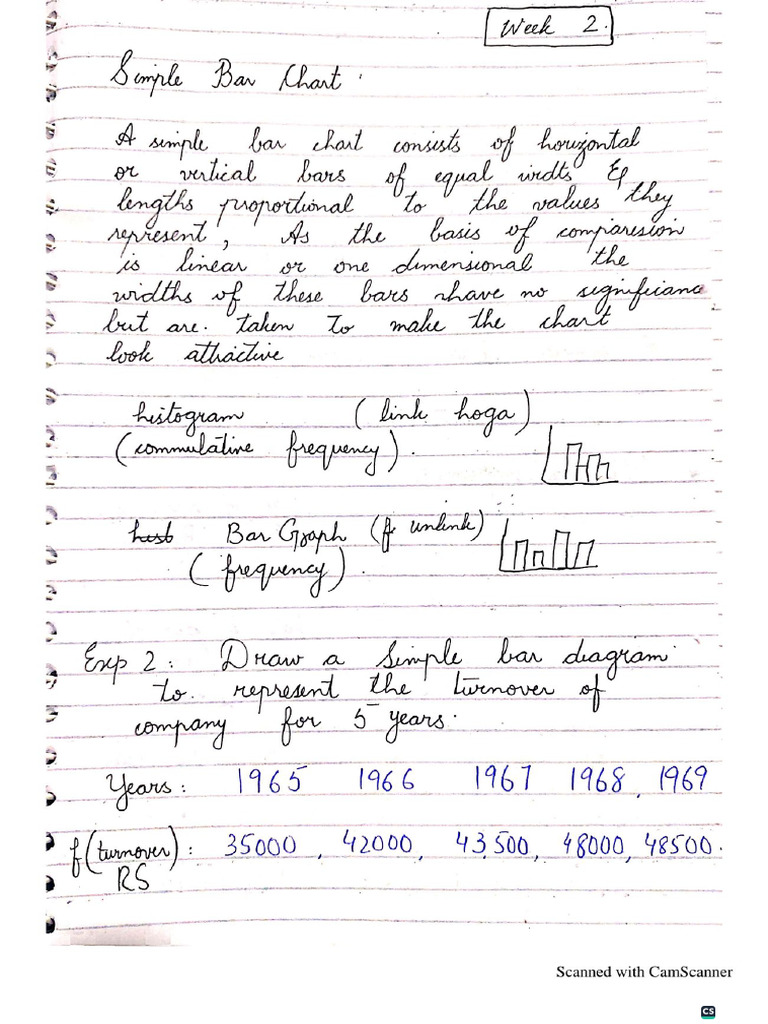 Week 2.
Simple Bar Chart.
A simple bar chart consists of horizontal
or vertical bars of equal widts &
lengths proportional to the values they
represent, As the basis of comparesion
is linear or one dimensional the
widths of these bars have no significanc
but are. taken to make the chart
look attractive
histogram (link hoga)
(commulative frequency).
hist Bar Graph (f unlink)
(frequency).
Exp 2: Draw a simple bar diagram
to. represent the turnover of
company for 5 years.
Years: 1965 1966 1967 1968, 1969
f(turnover): 35000, 42000, 43,500, 48000, 48500.
RS
Scanned with CamScanner
CS